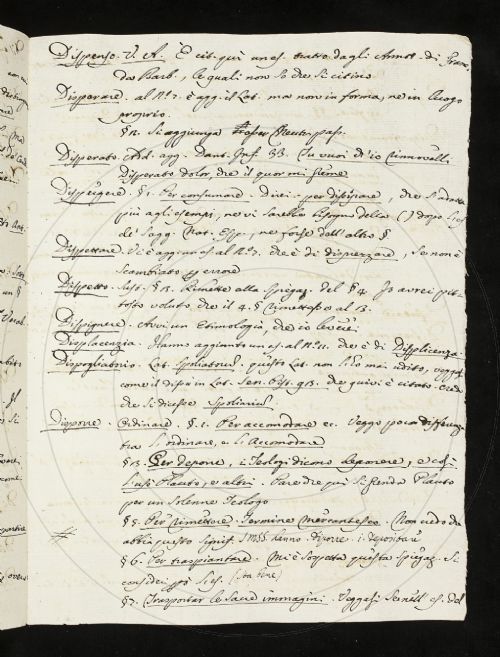 Dispenso. V. A. È cit. qui un es. tratto dagli Amm. di Franc.
da Barb., le quali non so che si citino.
Disperare. al N.° 2. è agg. il Lat. ma non in forma, ne in luogo
proprio.
§ 12. Si aggiunga pass.
Disperato. Add. agg. Dant. Inf. 33. Tu vuoi ch'io rinnovelli
Disperato dolor, che il quor mi preme
§ 1. Per consumare. Direi, per che s'adatta
più agli esempi, ne vi sarebbe bisogno della () dopo
de' Sagg. Nat. Esp., ne forse dell'altro §
Dispettare. Vi è aggiun. es. al N.° 2. che è di disprezzare, se non è
scambiato per errore
Dispetto. Sust. § 13. Rimette alla spiegaz. del § 4. Io avrei piut-
tosto voluto che il 4. § rimettesse al 13.
Dispignere. Avvi un Etimologia, che io leverei.
Displacenzia. Hanno aggiunto un es. al N.° 11. che è di Displicenza.
Dispogliatorio. Lat. spoliatorium. questo Lat. non l'ho mai udito, veggasi
come il disse in Lat. Sen. Pist. 93. che quivi è citato. Crede
che si dicesse Spoliarium
Disporre. Ordinare. § 1. Per accomodare ec. Veggo poca differenza
tra l'ordinare, e l'Accomodare
§ 3. Per deporre, i Teologi dicono deponere, e così
l'usò Plauto, e altri. Pare che qui si prenda Plauto
per un solenne Teologo
§ 5. Per rimettere. Termine mercantesco. Non vedo che
abbia questo signif. I MSS. hanno. diporre. i. depositare
§ 6. Per traspiantare. Mi è sospetta questa spiegaz. Si
consideri più l'es. (sta bene)
§ 7. Trasportar le sacre immagini. Veggasi se nell' es. del